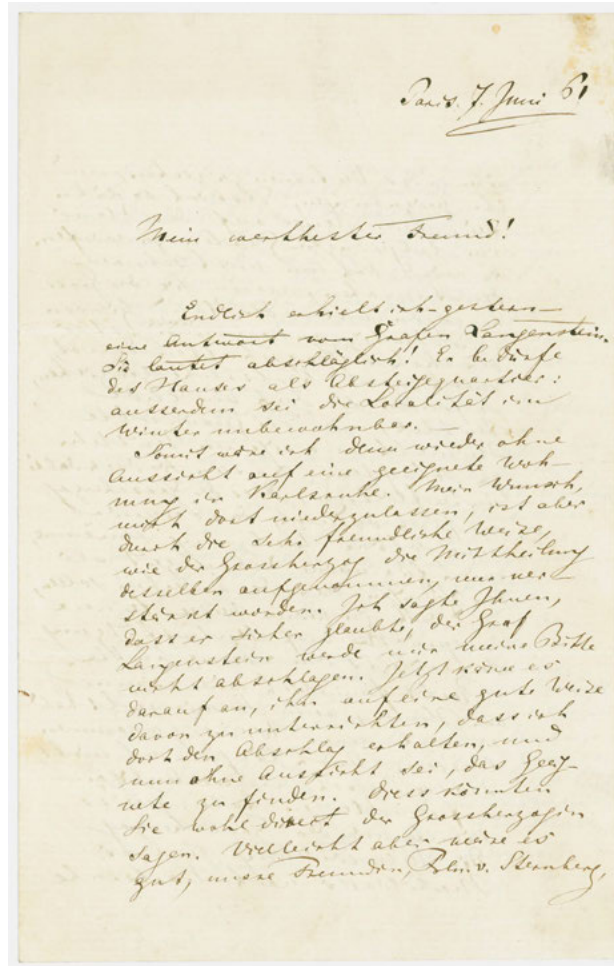 Paris. 7. Juni 61
Mein werthester Freund!
Endlich erhielt ich – gestern –
eine Antwort vom Grafen Langenstein.
Sie lautet abschläglich! Er bedürfe
des Hauses als Absteigequartier:
ausserdem sei die Localität im
Winter unbewohnbar. –
Somit wäre ich denn wieder ohne
Aussicht auf eine geeignete Woh-
nung in Karlsruhe. Mein Wunsch,
mich dort niederzulassen, ist aber
durch die sehr freundliche Weise,
wie der Grossherzog die Mittheilung
desselben aufgenommen, nur ver-
stärkt worden. Ich sagte Ihnen,
dass er sicher glaubte, der Graf
Langenstein werde mir meine Bitte
nicht abschlagen. Jetzt käme es
darauf an, ihn auf eine gute Weise
davon zu unterrichten, dass ich
dort den Abschlag erhalten, und
nun ohne Aussicht sei, das Geeig-
nete zu finden. Diess könnten
Sie wohl direct der Grossherzogin
sagen. Vielleicht aber wäre es
gut, unsre Freundin, Frln. v. Sternberg,